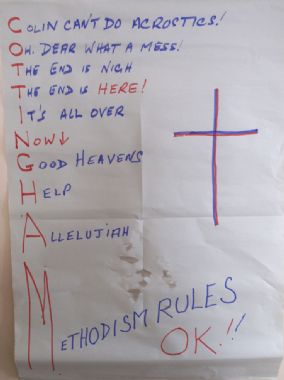 COLIN CAN'T DO ACROSTICS!
OH, DEAR WHAT A MESS!
THE END IS NIGH
THE END IS HERE!
IT'S ALL OVER
NOW↓
GOOD HEAVENS
HELP
ALLELUJIAH
METHODISM RULES
OK!!